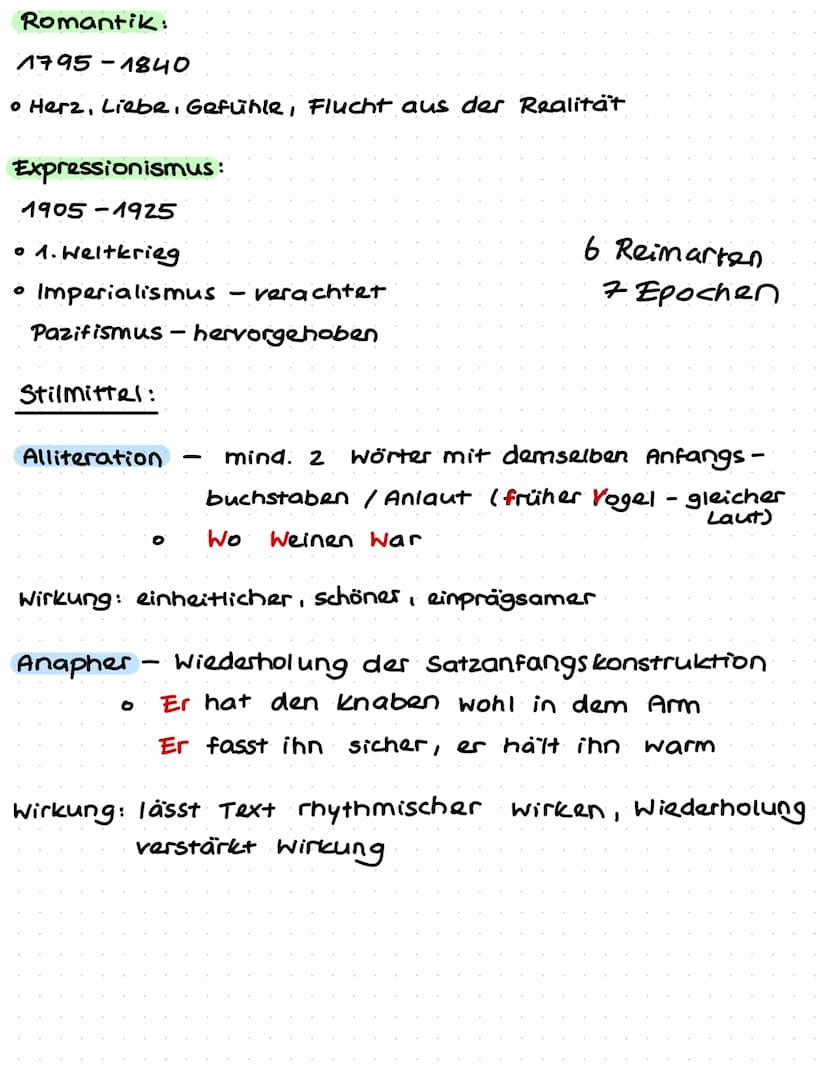 Romantik:
1795 - 1840
• Herz, Liebe, Gefühle, Flucht aus der Realität
Expressionismus:
1905 - 1925
• 1. Weltkrieg
6 Reimarten
• Imperialismus - verachtet
7 Epochen
Pazifismus - hervorgehoben
Stilmittel:
Alliteration - mind. 2 Wörter mit demselben Anfangs-
buchstaben / Anlaut (früher Vogel - gleicher
Laut)
• Wo Weinen War
Wirkung: einheitlicher, schöner, einprägsamer
Anapher - Wiederholung der Satzanfangskonstruktion
• Er hat den Knaben wohl in dem Arm
Er fasst ihn sicher, er hält ihn warm
Wirkung: lässt Text rhythmischer wirken, Wiederholung
verstärkt Wirkung